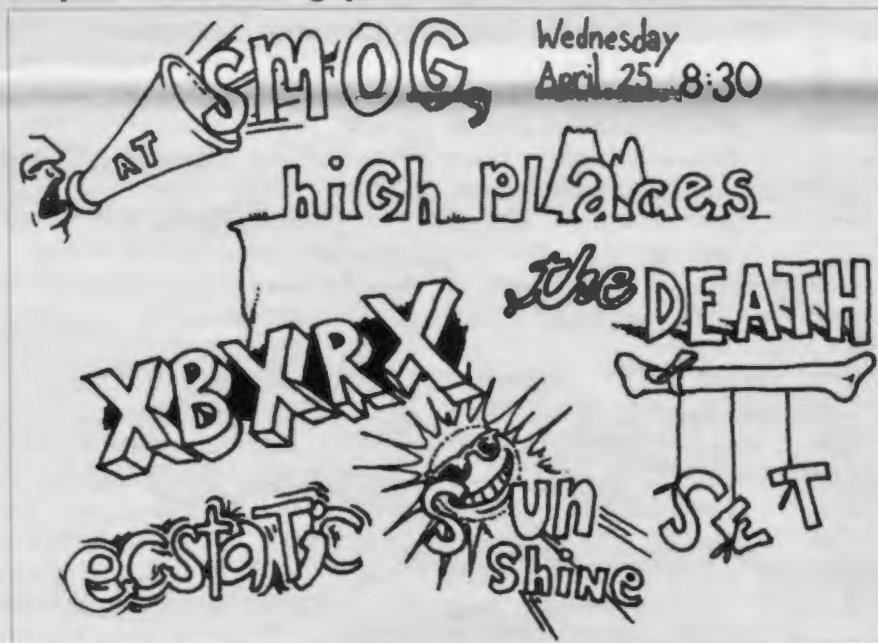 AT SMOG,
Wednesday
April 25 8:30
high places
the DEATH
SET
XBXRX
ecstatic
Sun
Shine